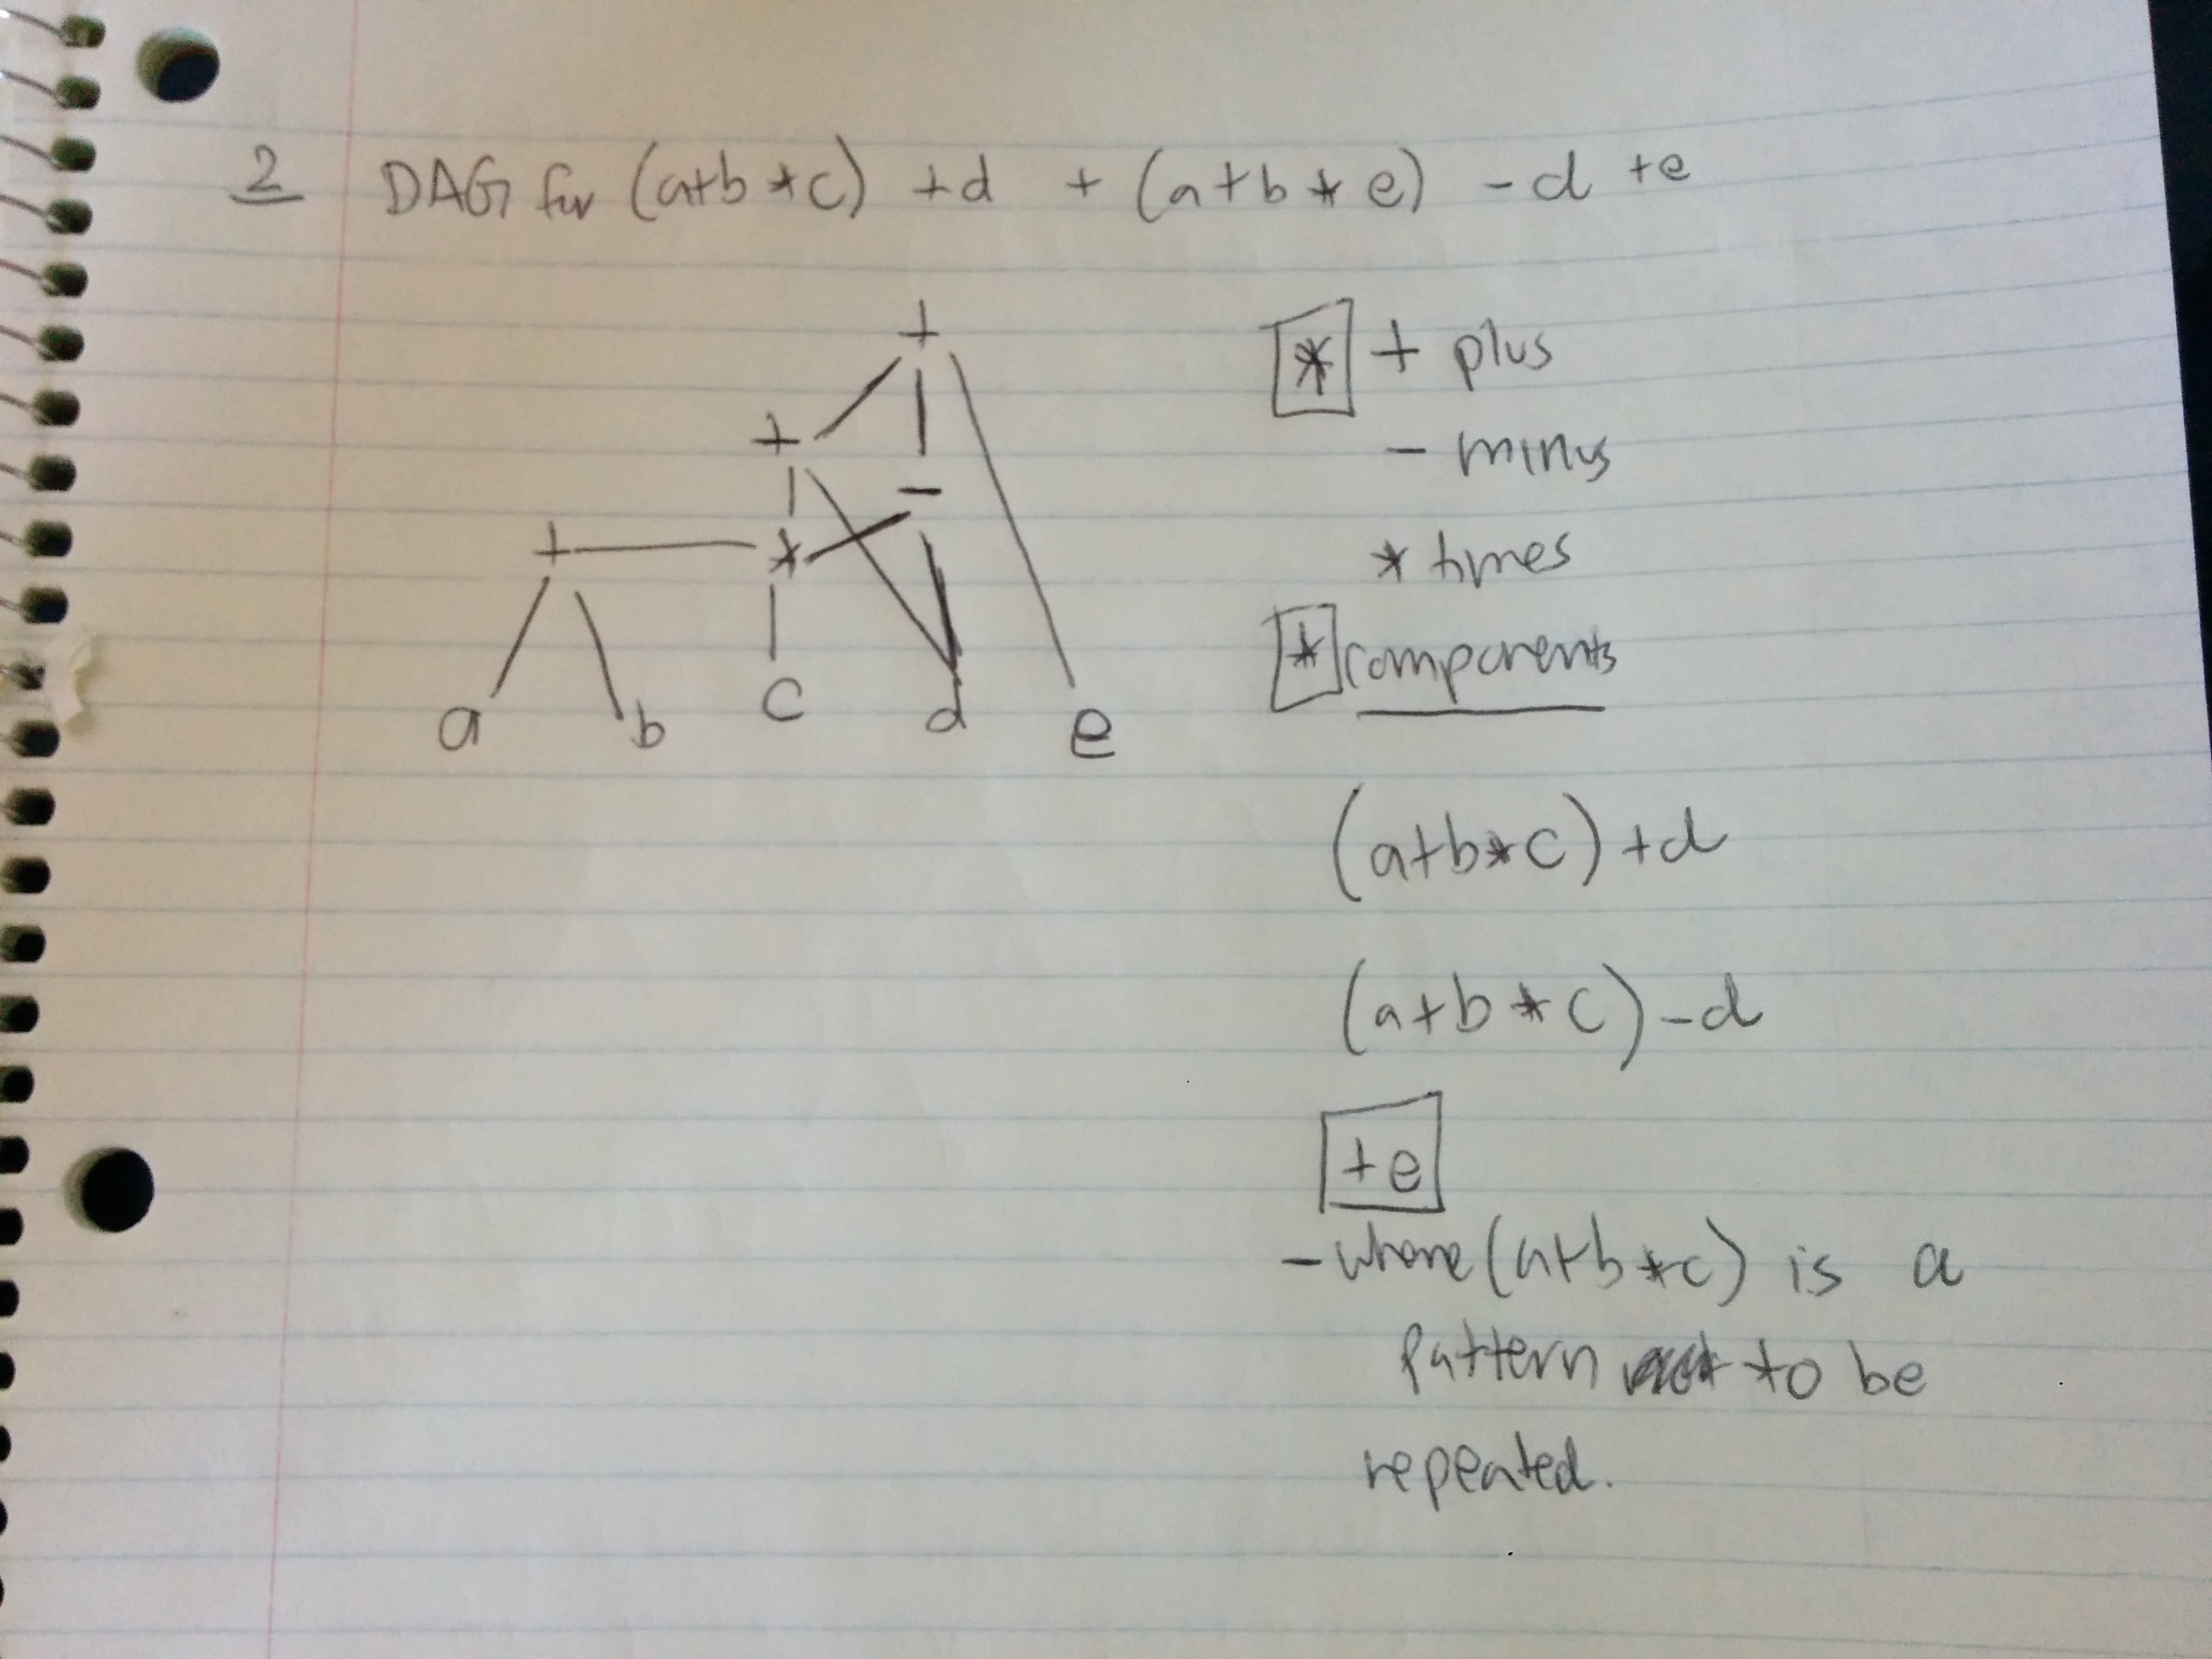 2 DAG for (a+b*c) +d + (a+b*e) -d +e
+
+
-
+ *
a b c d e
* + plus
- minus
* times
* components
(a+b*c)+d
(a+b*c)-d
+e
- where (a+b*c) is a
pattern to be
repeated.